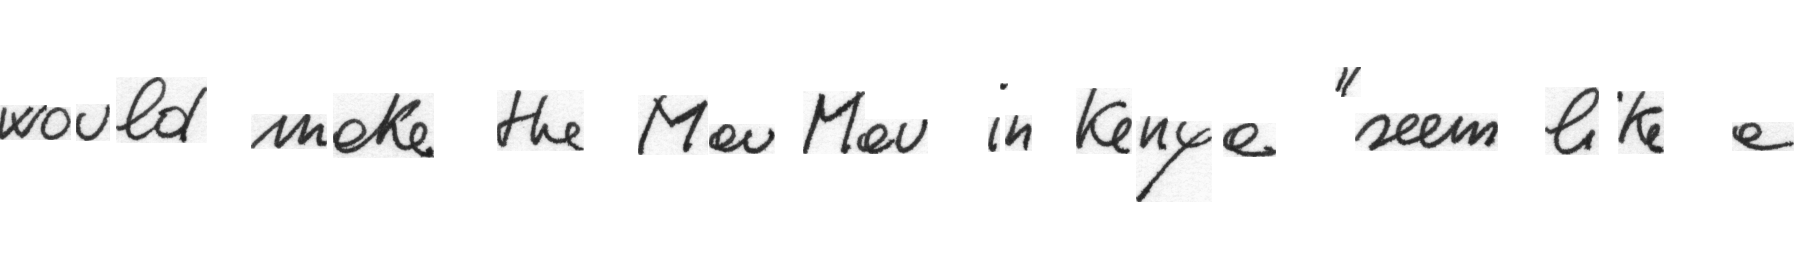 would make the Mau Mau in Kenya "seem like a